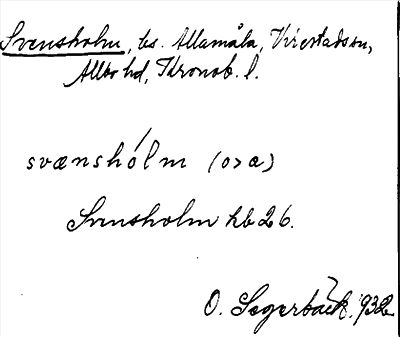 Svensholm, ts. Allamåla, Virestads sn,
Allbo hd, Kronob. l.
svænshólm (o>a)
Svensholm hb 26.
O. Segerbäck. 932